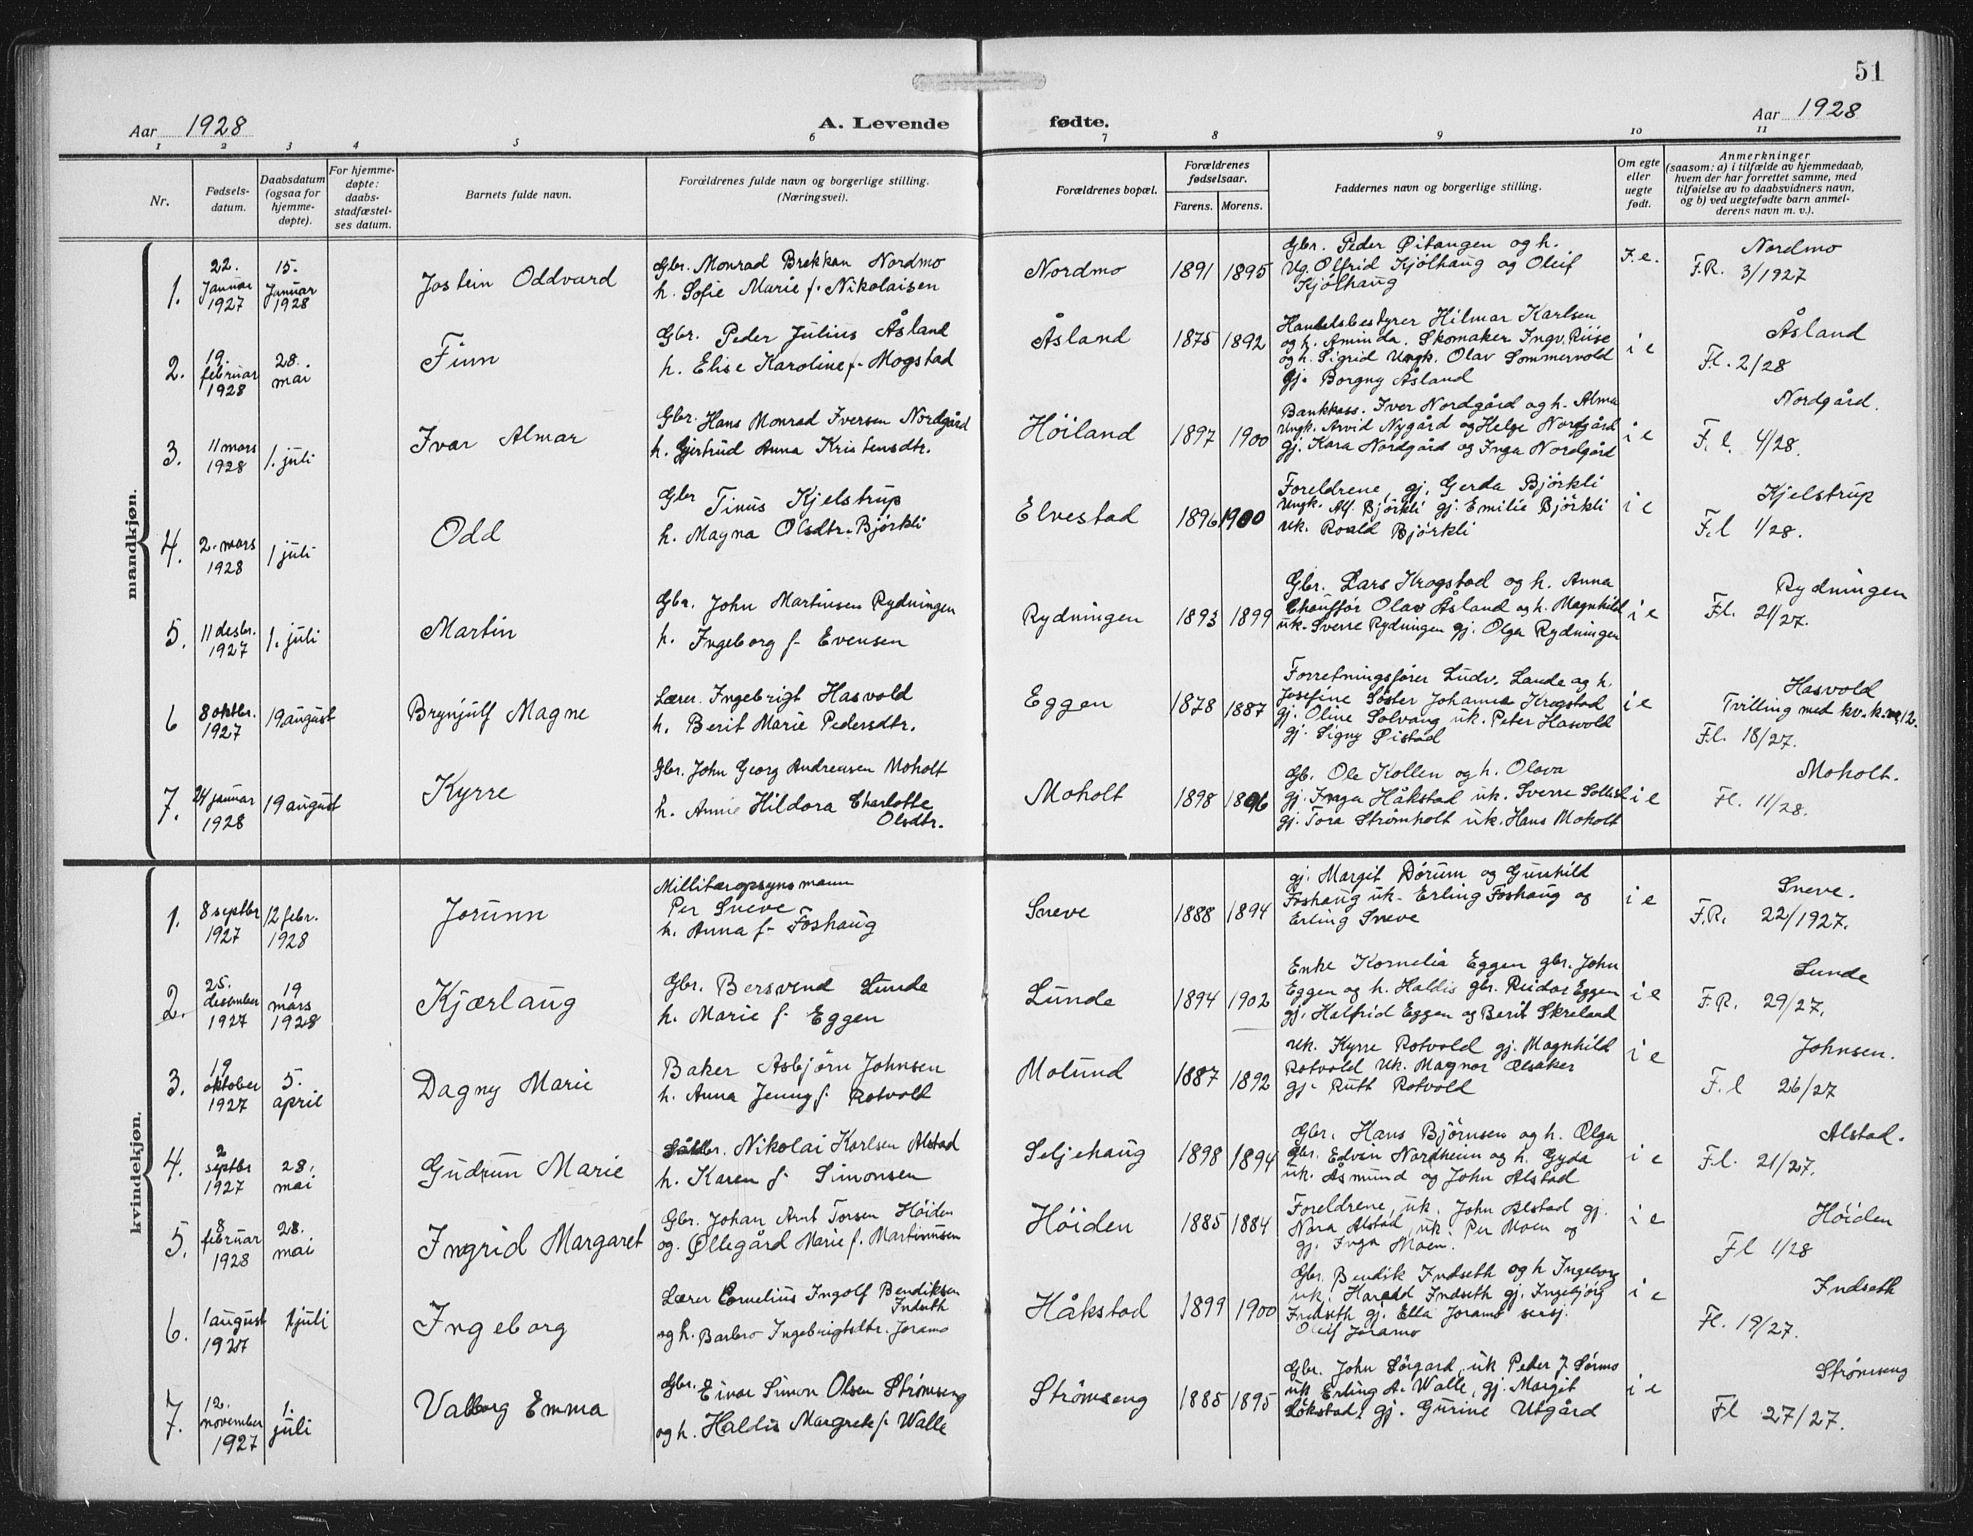 51
Aar 1928
A. Levende fødte.
Aar 1928
1 2 3 4 5 6 7 8 9 10 11
Nr.
Fødsels-
datum.
Daabsdatum
(ogsaa for
hjemme-
døpte).
For hjemme-
døpte:
daabs-
stadfæstel-
ses datum.
Barnets fulde navn.
Forældrenes fulde navn og borgerlige stilling.
(Næringsvei).
Forældrenes bopæl.
Forældrenes
fødselsaar.
Farens. Morens.
Faddernes navn og borgerlige stilling.
Om egte
eller
uegte
født.
Anmerkninger
(saasom: a) i tilfælde av hjemmedaab,
hvem der har forrettet samme, med
tilføielse av to daabsvidners navn,
og b) ved uegtefødte barn anmel-
derens navn m. v.).
mandkjøn.
1.
22.
Januar
1927
15.
Januar
1928
Jostein Oddvard
Gbr. Monrad Brekkan Nordmo
h. Sofie Marie f. Nikolaisen
Nordmo
1891 1895
Gbr. Peder Øitangen og h.
Ug. Olfrid Kjølhaug og Oleif
Kjølhaug
I. e.
Nordmo
F.R. 3/1927
2.
19.
februar
1928
28.
mai
Finn
Gbr. Peder Julius Åsland
h. Elise Karoline f. Mogstad
Åsland
1875 1892
Handelsbestyrer Hilmar Karlsen
og h. Aminda. Skomaker Ingv. Riise
og h. Sigrid Ungk. Olav Sommervold
Gj. Borgny Åsland
i e
Åsland
Fl. 2/28
3.
11 mars
1928
1. juli
Ivar Almar
Gbr. Hans Monrad Iversen Nordgård
h. Gjertrud Anna Kristensdtr.
Høiland
1897 1900
Bankkass. Iver Nordgård og h. Alma
Ungk. Arvid Nygård og Helge Nordgård
gj. Kara Nordgård og Inga Nordgård
i e
Nordgård.
F. l. 4/28.
4.
2. mars
1928
1 juli
Odd
Gbr Tinus Kjelstrup
h. Magna Olsdtr. Bjørkli
Elvestad
1896 1900
Foreldrene, gj. Gerda Bjørkli
Ungk. Alf. Bjørkli gj. Emilie Bjørkli
uk. Roald Bjørkli
i e
Kjelstrup
F.l 1/28.
5.
11 desbr.
1927
1. juli
Martin
Gbr. John Martinsen Rydningen
h. Ingeborg f. Evensen
Rydningen
1893 1899
Gbr. Lars Krogstad og h. Anna
Chauffør Olav Åsland og h. Magnhild
uk. Sverre Rydningen gj. Olga Rydningen
i e
Rydningen
Fl. 21/27.
6
8 oktbr.
1927
19 august
Brynjulf Magne
Lærer. Ingebrigt Hasvold
h. Berit Marie Pedersdtr.
Eggen
1878 1887
Forretningsfører Ludv. Lande og h.
Josefine Søster Johanna Krogstad
gj. Oline Solvang uk. Peter Hasvold
gj. Signy Øistad
i e
Hasvold
Tvilling med kv. k. nr 12.
F.l. 18/27.
7.
24 januar
1928
19 august
Kyrre
Gbr. John Georg Andreasen Moholt
h. Annie Hildora Charlotte
Olsdtr.
Moholt
1898 1896
Gb. Ole Kollen og h. Olava
gj. Inga Håkstad uk. Sverre
gj. Tora Strømholt uk. Hans Moholt
i e
Moholt.
Fl. 11/28.
kvindekjøn.
1.
8 septbr
1927
12 febr.
1928
Jorunn
Millitæropsynsmann
Per Sneve
h. Anna f. Foshaug
Sneve
1888 1894
gj. Margit Dørum og Gunhild
Foshaug uk. Erling Foshaug og
Erling Sneve
i e
Sneve.
F.R. 22/1927.
2.
25.
desember
1927
19
mars
1928
Kjærlaug
Gbr. Bersvend Lunde
h. Marie f. Eggen
Lunde
1894 1902
Enke Kornelia Eggen gbr. John
Eggen og h. Haldis gbr. Reidar Eggen
gj. Halfrid Eggen og Berit Skreland
i e
Lunde
F.R. 29/27.
3.
19
oktober
1927
5.
april
Dagny Marie
Baker Asbjørn Johnsen
h. Anna Jenny f. Rotvold
Molund
1887 1892
uk. Kyrre Rotvold gj. Magnhild
Rotvold uk. Magnor Alsaker
gj. Ruth Rotvold
i e
Johnsen.
F. l 26/27
4.
2
septbr
1927
28.
mai
Gudrun Marie
Nikolai Karlsen Alstad
h. Karen f. Simonsen
Seljehaug
1898 1894
Gbr. Hans Bjørnsen og h. Olga
Gbr. Edvin Nordheim og h. Gyda
uk. Åsmund og John Alstad
i e
Alstad.
F.l. 21/27.
5.
8
februar
1928
28.
mai
Ingrid Margaret
Gbr. Johan Arnt Torsen Høiden
og. Øllegård Marie f. Martinusen
Høiden
1885 1884
Foreldrene, uk. John Alstad gj.
Nora Alstad, uk. Per Moen og
gj. Inga Moen.
i e
Høiden
Fl 1/28
6.
1 august
1927
1 juli
Ingeborg
Lærer Cornelius Ingolf Bendiksen
Indseth
og h. Barbro Ingebrigtsdtr. Joramo
Håkstad
1899 1900
Gbr. Bendik Indseth og h Ingeborg
uk. Harald Indseth gj. Ingebjørg
Indseth gj. Ella Joramo sersj.
Olaf Joramo
i e
Indseth
Fl. 19/27.
7.
12.
november
1927
1.
juli
Valborg Emma
Gbr. Einar Simon Olsen Strømseng
og h. Haldis Margrete f. Walle
Strømseng
1885 1895
Gbr. John Sørgard, uk Peder J. Sørmo
uk Erling A. Walle, gj. Margit
Løkstad, gj. Gurine Utgård
i e
Strømseng
Fl 27/27.